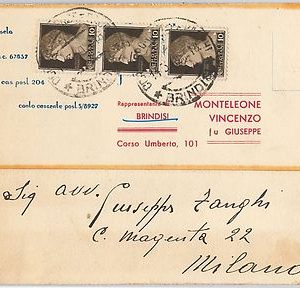 sela
c. 67857
cas post. 204
conto corrente post. 5/8927
10 10 10
BRINDISI
BRINDISI
Rappresentante
BRINDISI
Corso Umberto, 101
MONTELEONE
VINCENZO
fu GIUSEPPE
Sig avv. Giuseppe Zanghi
C. Magenta 22
Milano